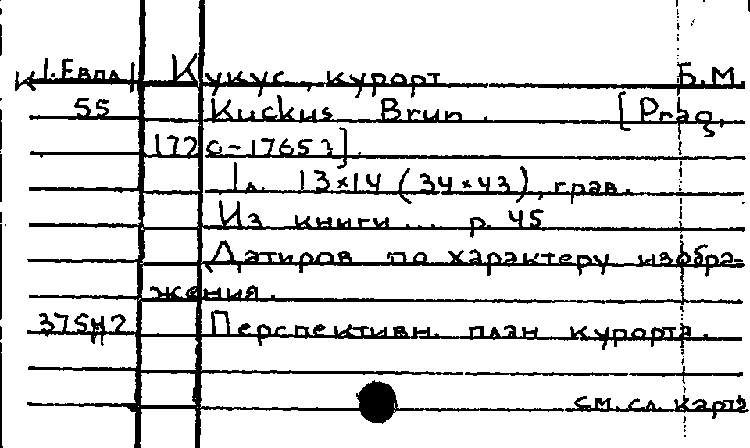 К 1.Евпл Кукус, курорт Б.М.
55 Kuckus Brun. [Prag,
1720-1765?]
1 л. 13×14 (34×43), грав.
Из книги... p. 45
Датиров по характеру изобра-
жения.
375Н2 Перспективн. план курорта.
см. сл. карт